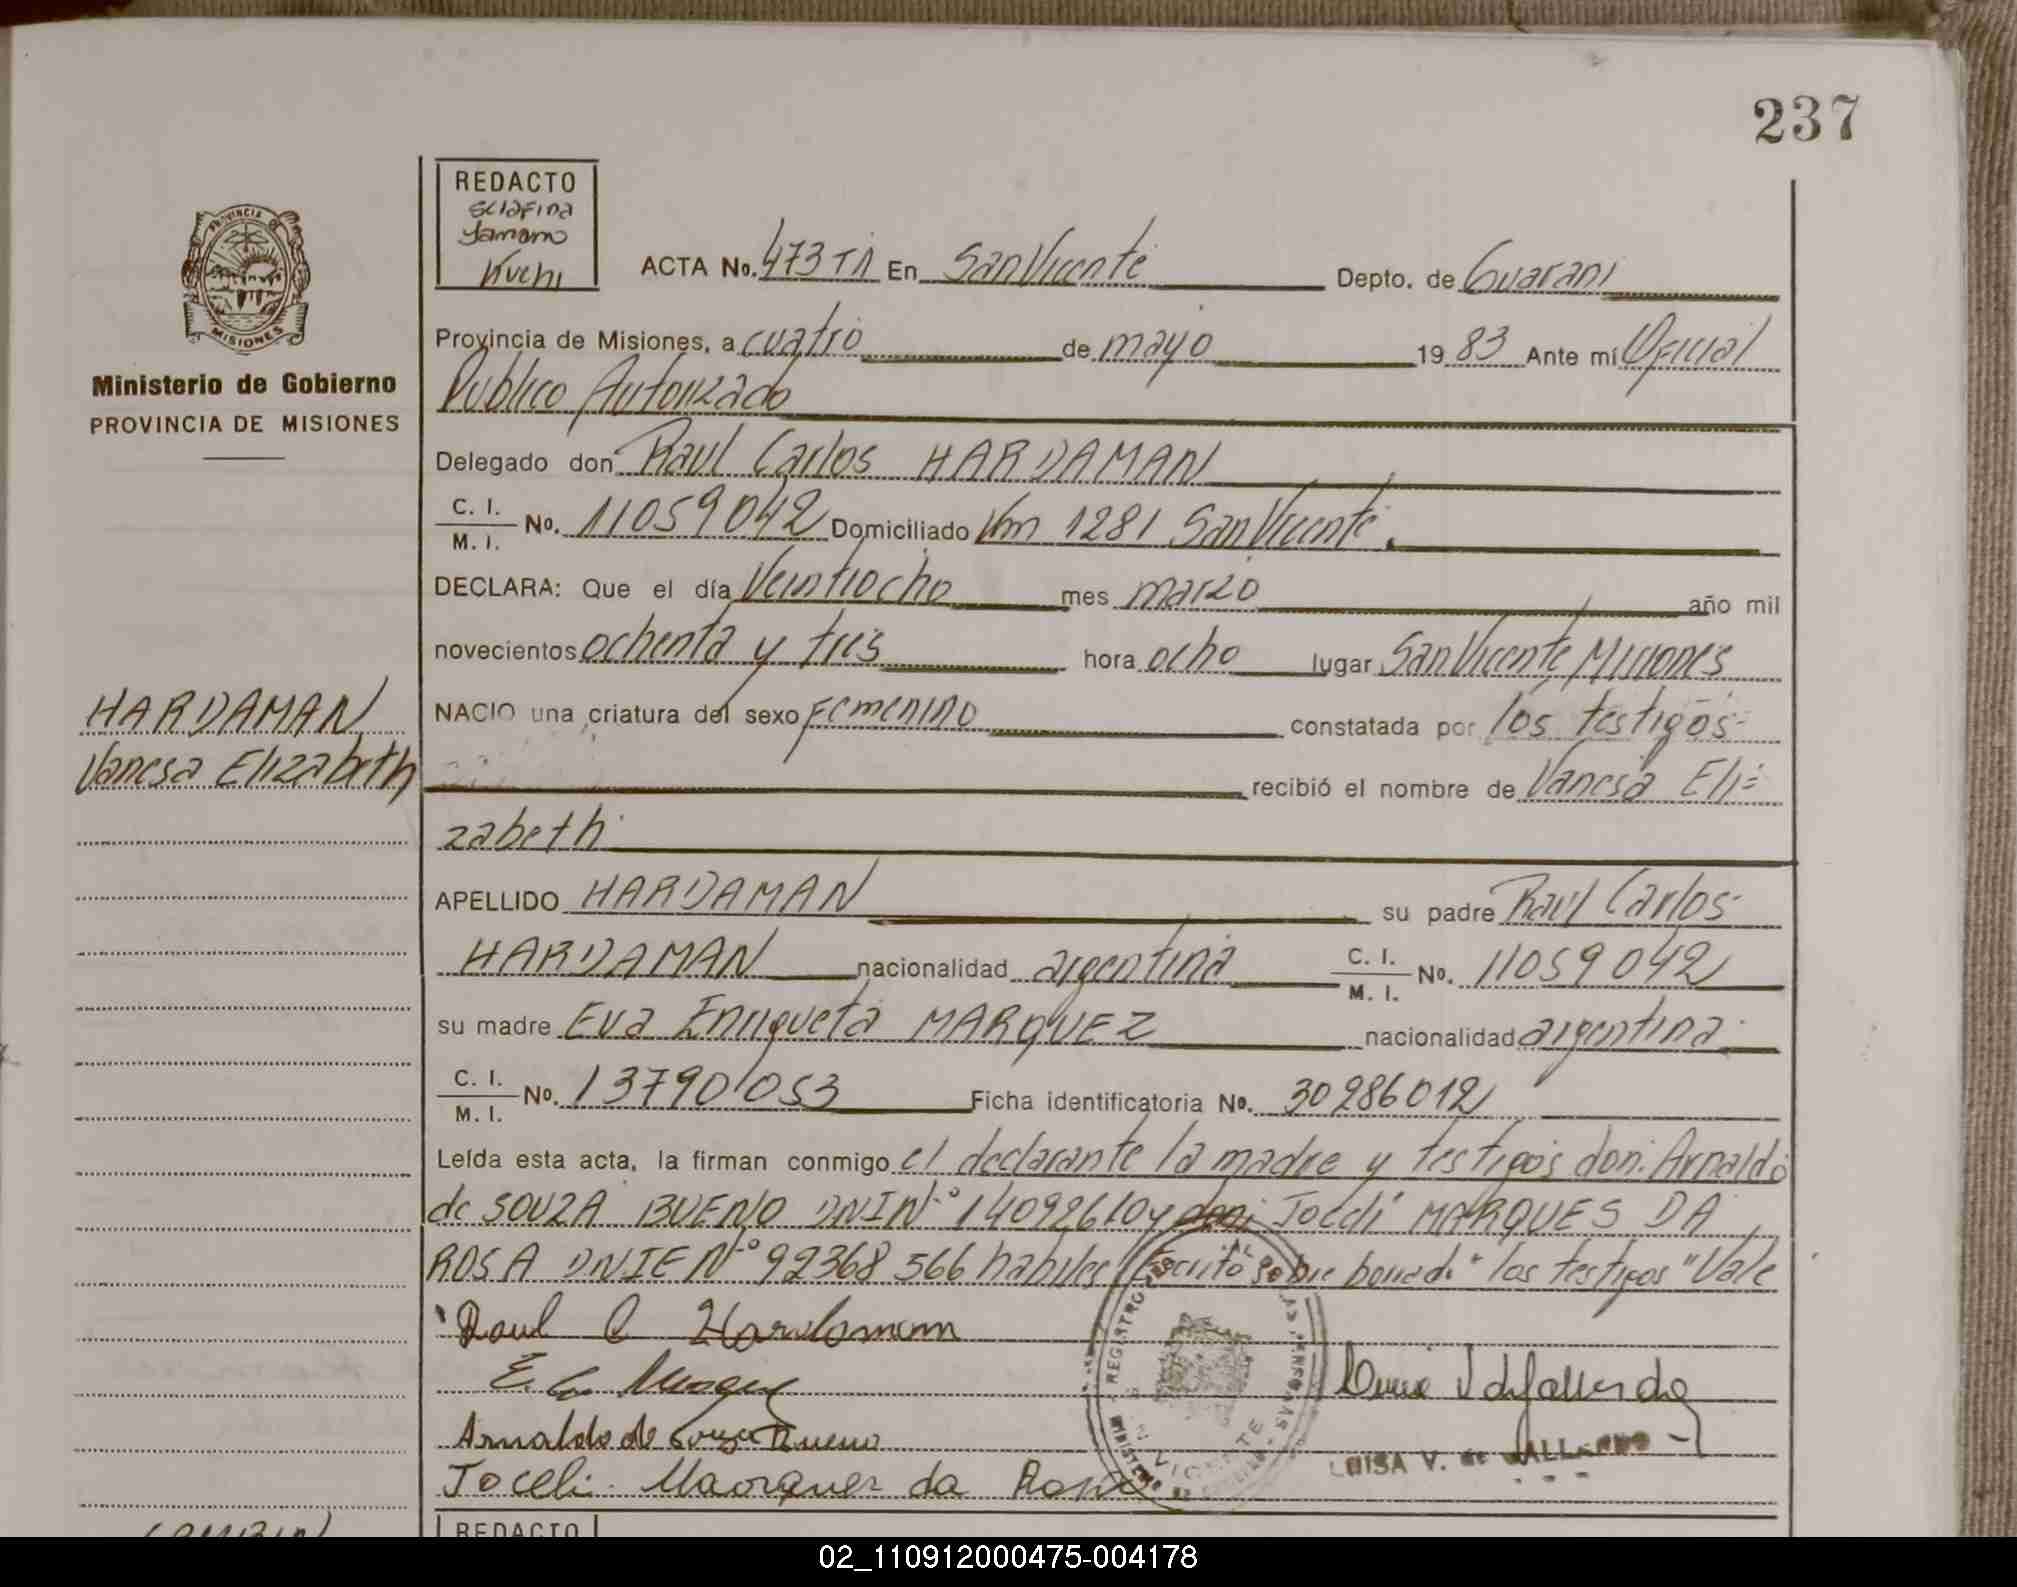 237
REDACTO
Kuchi
PROVINCIA DE
MISIONES
ACTA No. 473 T1 En San Vicente Depto. de Guarani
Provincia de Misiones, a cuatro de mayo 1983 Ante mí Oficial
Publico Autorizado
Ministerio de Gobierno
PROVINCIA DE MISIONES
Delegado don Raul Carlos HARDAMAN
C. I.
M. I. No. 11059042 Domiciliado Km 1281 San Vicente.
DECLARA: Que el día Veintiocho mes marzo año mil
novecientos ochenta y tres hora ocho lugar San Vicente Misiones
HARDAMAN
Vanesa Elizabeth
NACIO una criatura del sexo Femenino constatada por los testigos
recibió el nombre de Vanesa Eli=
zabeth
APELLIDO HARDAMAN su padre Raul Carlos
HARDAMAN nacionalidad argentina C. I.
M. I. No. 11059042
su madre Eva Enriqueta MARQUEZ nacionalidad argentina
C. I.
M. I. No. 13790053 Ficha identificatoria No. 30286012
Leída esta acta, la firman conmigo el declarante la madre y testigos don: Arnaldo
de SOUZA BUENO DNI Nº 14092610 y don: Joceli MARQUES DA
ROSA DNIE Nº 92368566 habiles/Escrito sobre borrado "los testigos" Vale
Raul C Hardaman
Arnaldo de Souza Bueno
Joceli Marques da Rosa
LUISA V. de GALLARDO
REDACTO
02_110912000475-004178